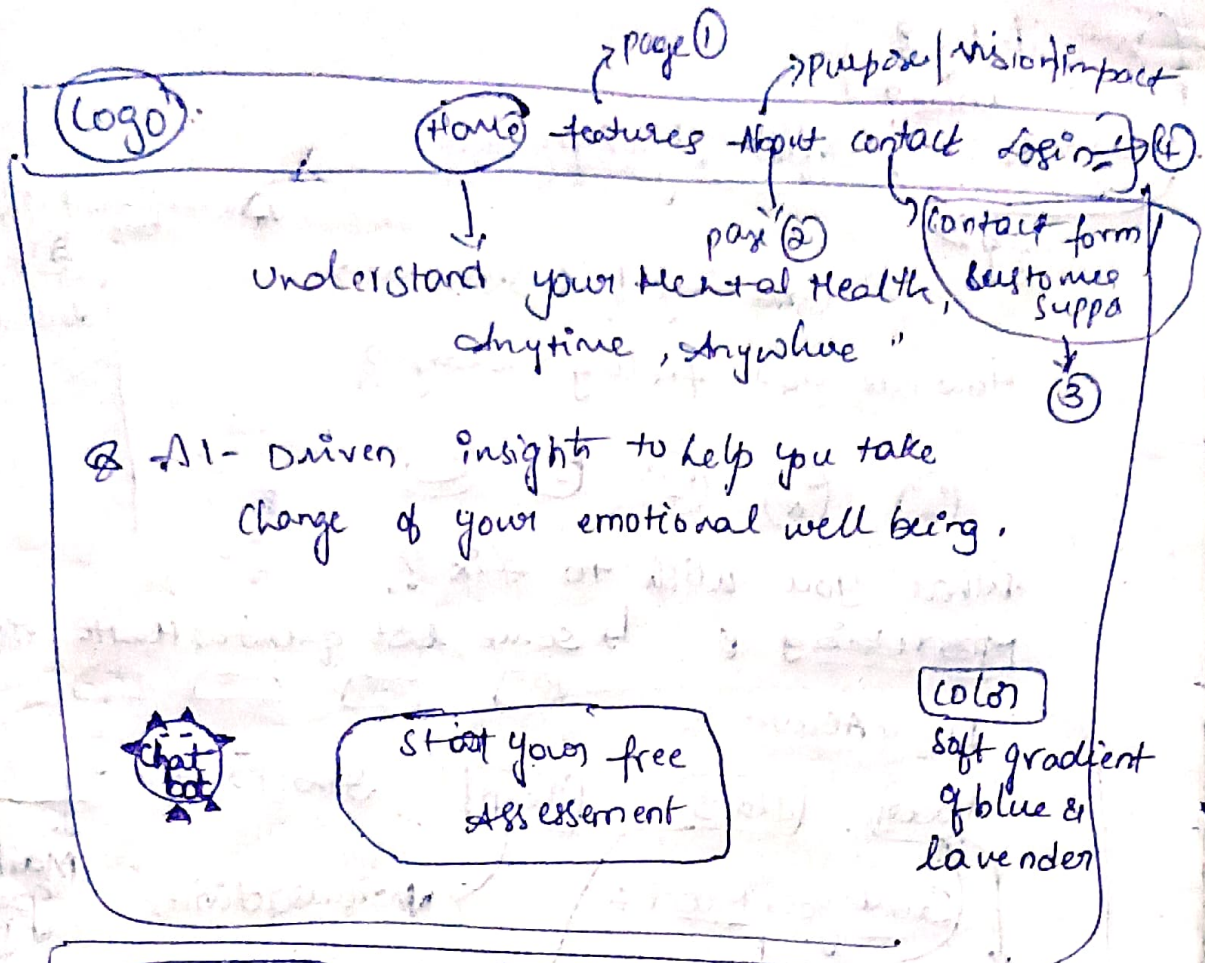 page ①
purpose/vision/impact
Logo
Home features About contact Login ④
page ②
Contact form
customer
suppo
③
understand your Mental Health,
Anytime, Anywhere"
AI- Driven insights to help you take
Change of your emotional well being.
Chat
bot
Start your free
Assessement
color
soft gradient
of blue &
lavender